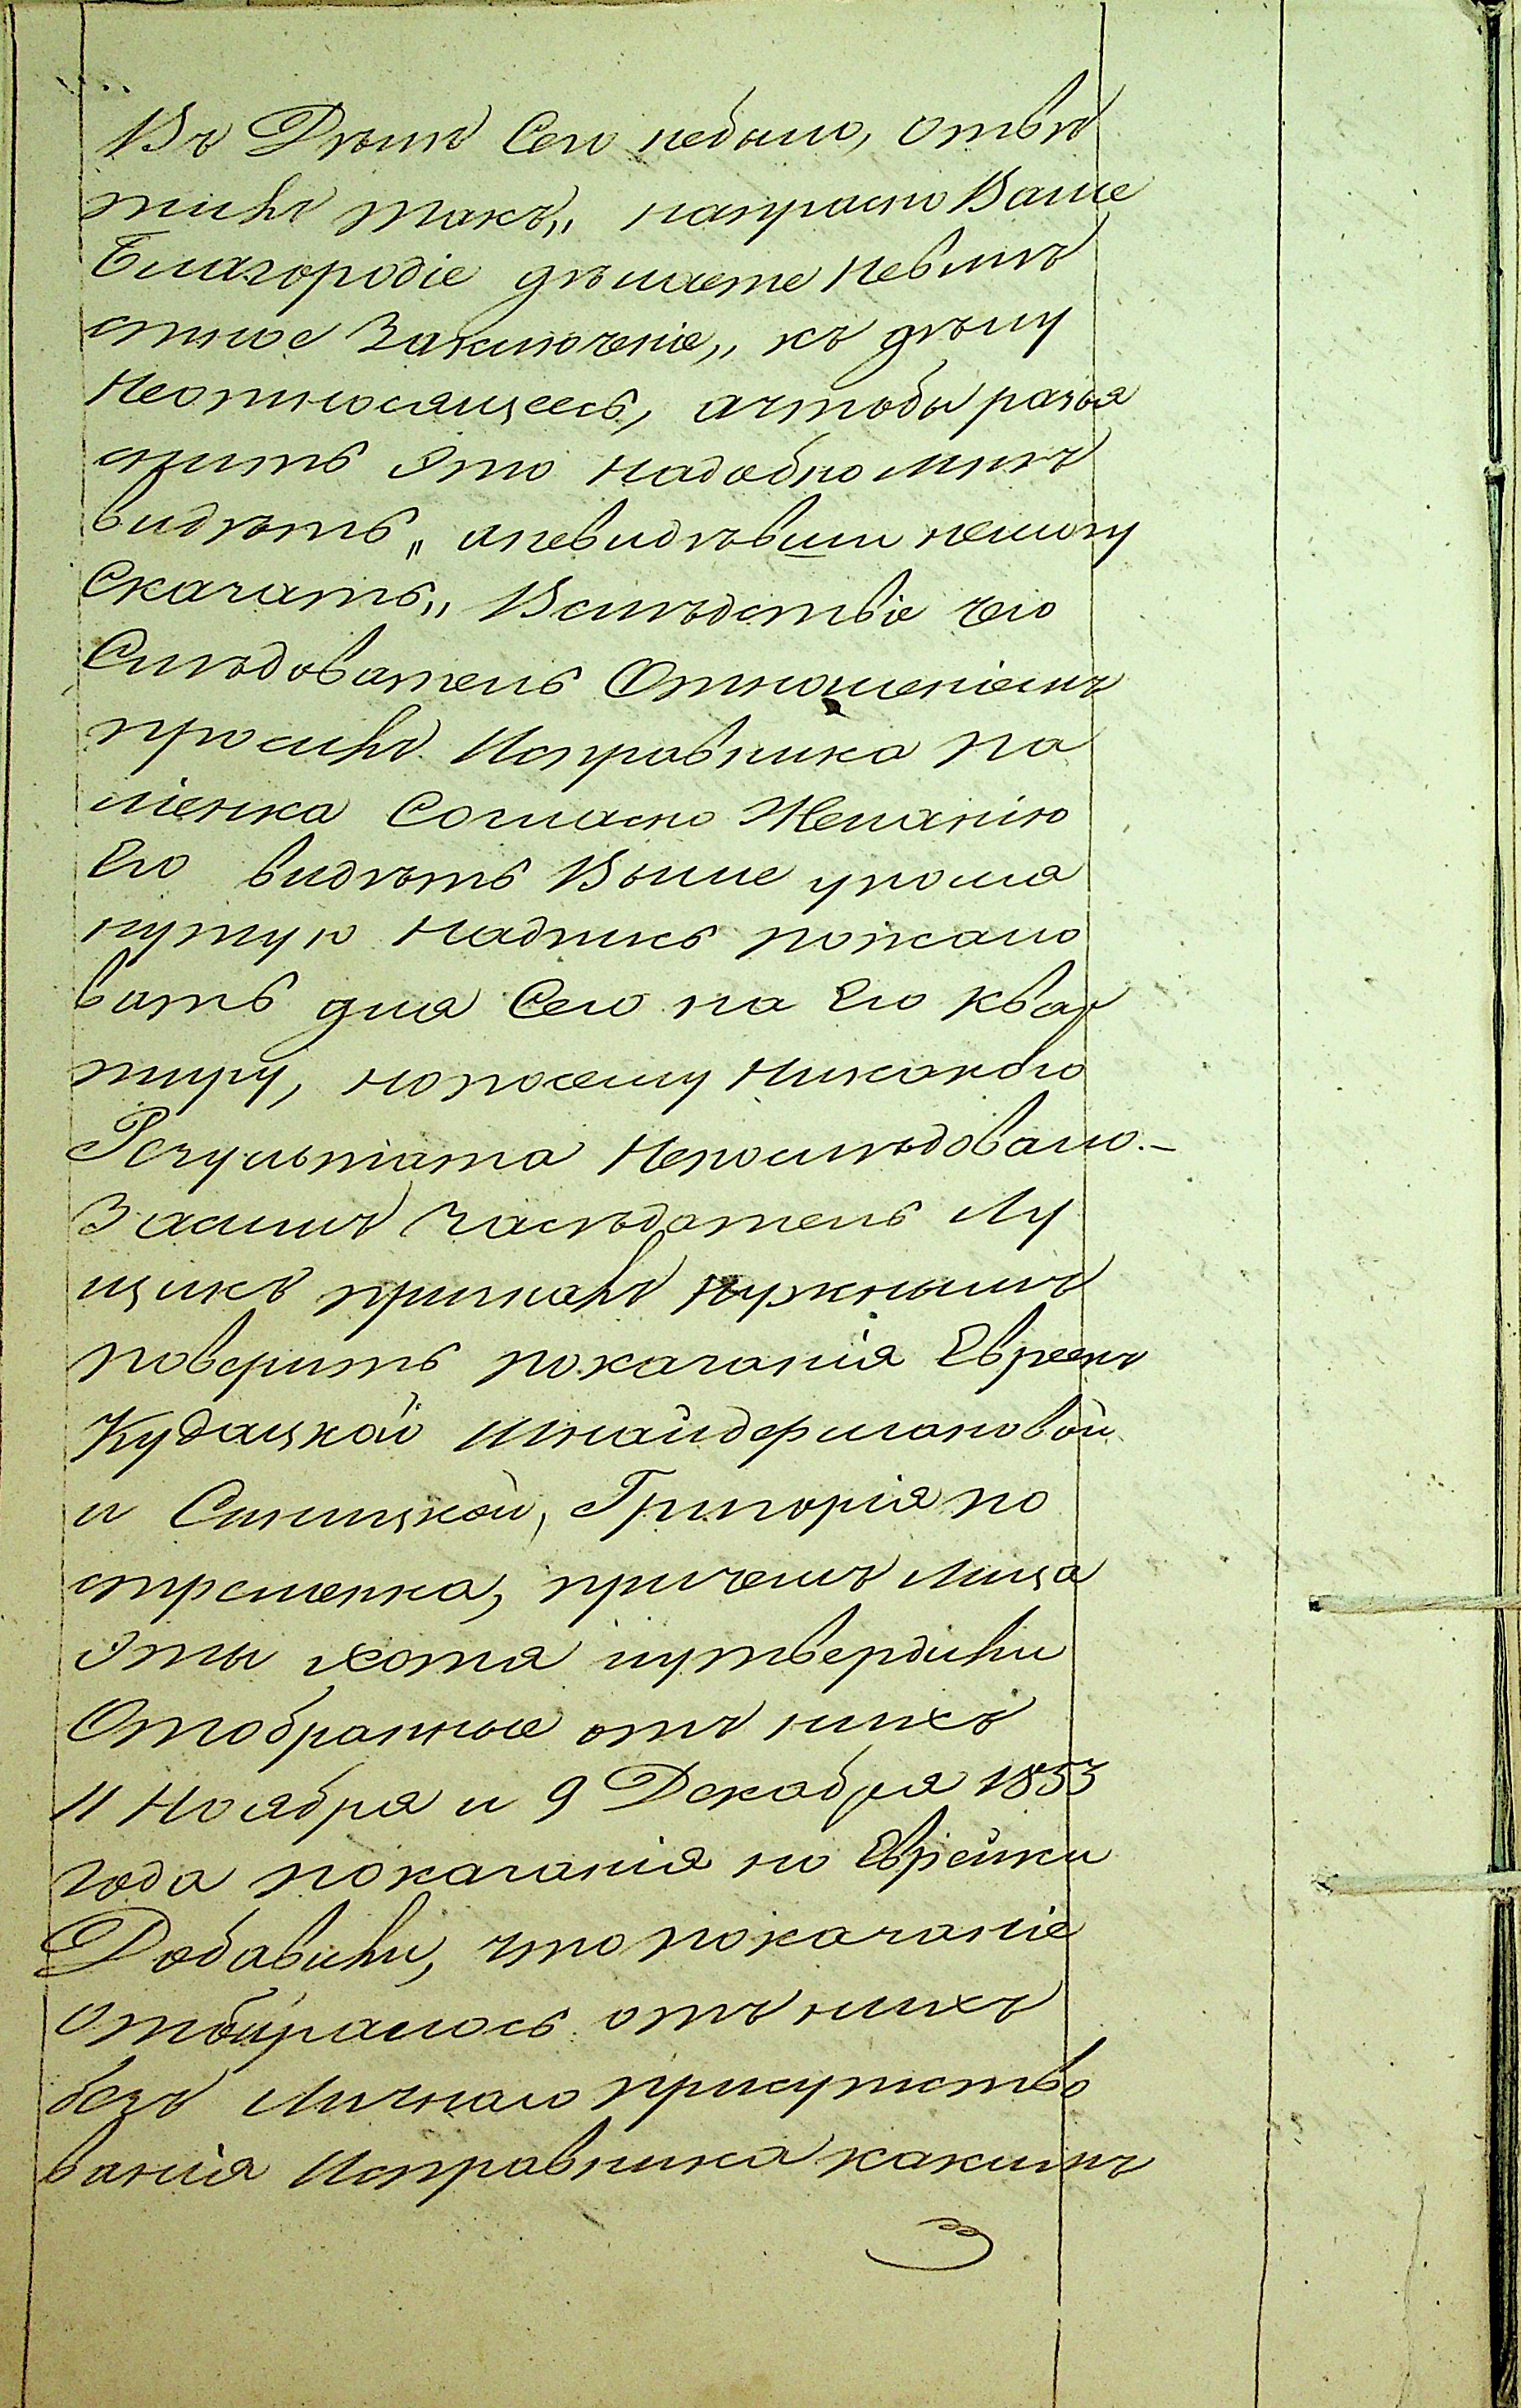 Въ Дѣлѣ Сего небыло, отвѣ
тилъ такъ„ напрасно Ваше
Благородіе дѣлаете невмѣ
стное Заключеніе„ къ дѣлу
Неотносящееся, ачтобы разъя
снить Это надобно мнѣ
видѣть„ аневидѣвши немогу
Сказать„ Вслѣдствіе чего
Слѣдователь Отношеніемъ
просилъ Исправника Па
ліенка Согласно Желанію
Его видѣть Выше упомя
нутую Надпись пожало
вать для Сего на Его Квар
тиру, нопосему Никакого
Результата Непослѣдовало.—
Засимъ Засѣдатель Лу
щикъ призналъ нужнымъ
поверить показанія Евреекъ
Кудацкой Шнайдермановой
и Синицкой, Григорія По
стременка, причемъ Лица
Эты хотя иутвердили
Отобранные отъ нихъ
11 Ноября и 9 Декабря 1853
года показанія но Еврейки
Добавили, что показаніе
Отбиралось отъ нихъ
безъ Личнаго присутство
ванія Исправника какимъ